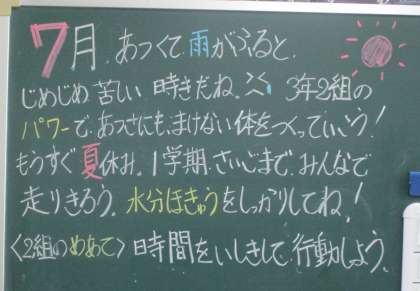 7月、あつくて、雨がふると、
じめじめ、苦しい 時きだね。 3年2組の
パワーで、あつさにも、まけない体をつくっていこう!
もうすぐ夏休み。1学期、さいごまで、みんなで
走りきろう。水分ほきゅうをしっかりしてね!
<2組のめあて> 時間をいしきして、行動しよう。